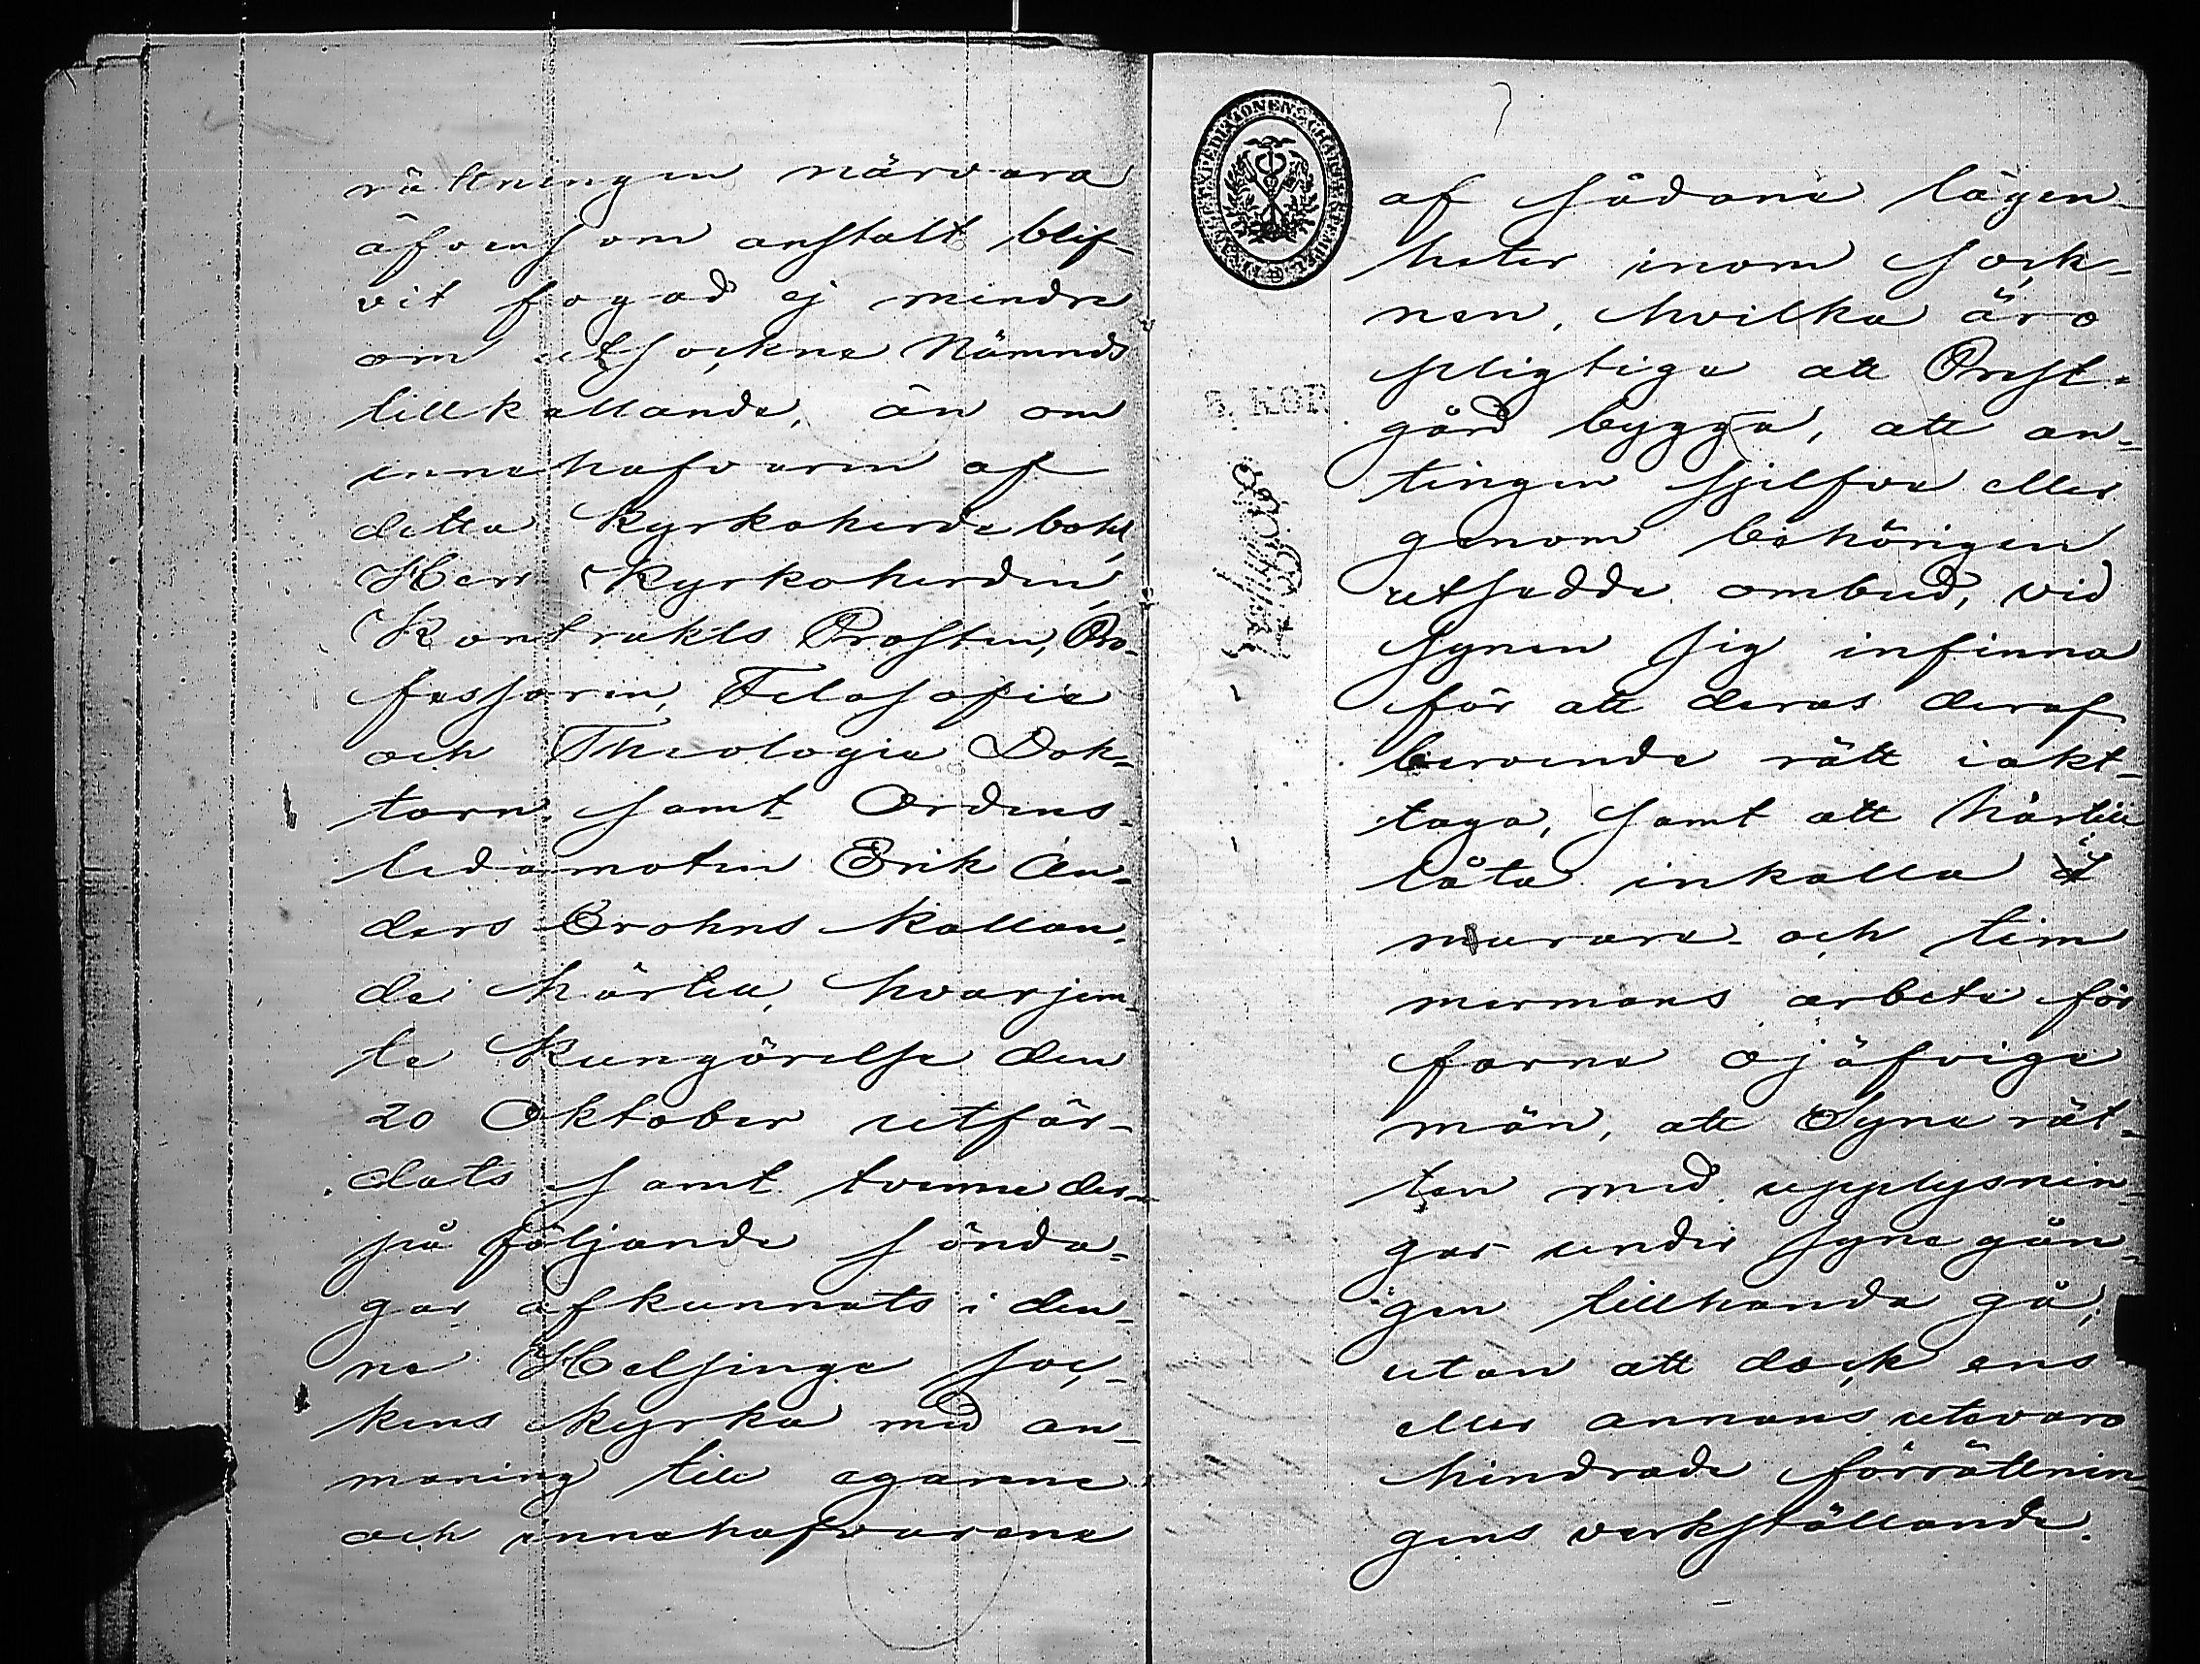 rättningen närvara
äfvensom anstalt blif-
vit fogad ej mindre
om utsockne Nämnds
tillkallande, än om
innehafvaren af
detta Kyrkoherde bohl,
Herr Kyrkoherden,
Kontrakts Prosten, Pro-
fessoren, Filosofie
och Theologie Dok-
torn samt Ordens-
ledamoten Erik An-
ders Crohns kallan-
de härtill, hvarjem-
te Kungörelse den
20 Oktober utfär-
dats samt tvenne der-
på följande sönda-
gar afkunnats i den-
na Helsinge soc-
kens kyrka med an-
maning till egarene
och innehafvarene
af sådana lägen-
heter inom sock-
nen, hvilka äro
pligtige att Prest-
gård bygga, att an-
tingen sjelfva eller
genom behörigen
utsedde ombud, vid
synen sig infinna
för att deras deraf
beroende rätt iakt-
taga, samt att härtill
låta inkalla i
murare- och tim
mermans arbete för
farne ojäfvige
män, att Syne rät-
ten med upplysnin-
gar under syne gån-
gen tillhanda gå,
utan att dock ens
eller annans utevaro
hindrade förrättnin
gens verkställande.